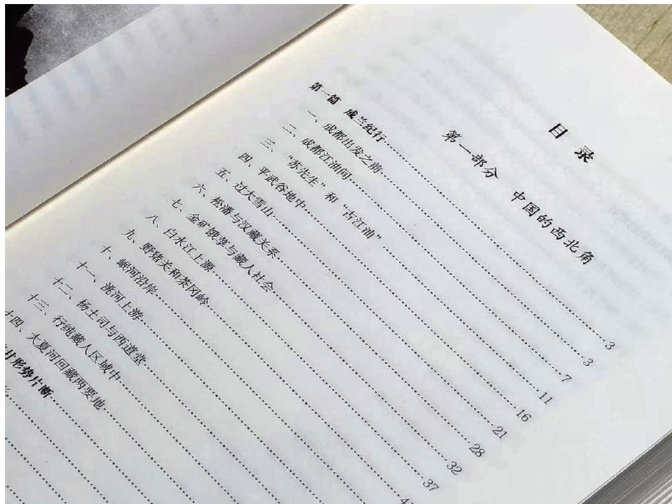 目 录
第一部分 中国的西北角
第一篇 成兰纪行 3
一、成都出发之前 3
二、成都江油间 7
三、“苏先生”和“古江油” 11
四、平武谷地中 16
五、过大雪山 21
六、松潘与汉藏关系 28
七、金矿 与藏人社会 32
八、白水江上源 37
九、野猪关和茶冈岭
十、岷河沿岸
十一、洮河上游
十二、杨土司与西道堂
十三、行纯藏人区域中
十四、大夏河回藏两要地
形势片断